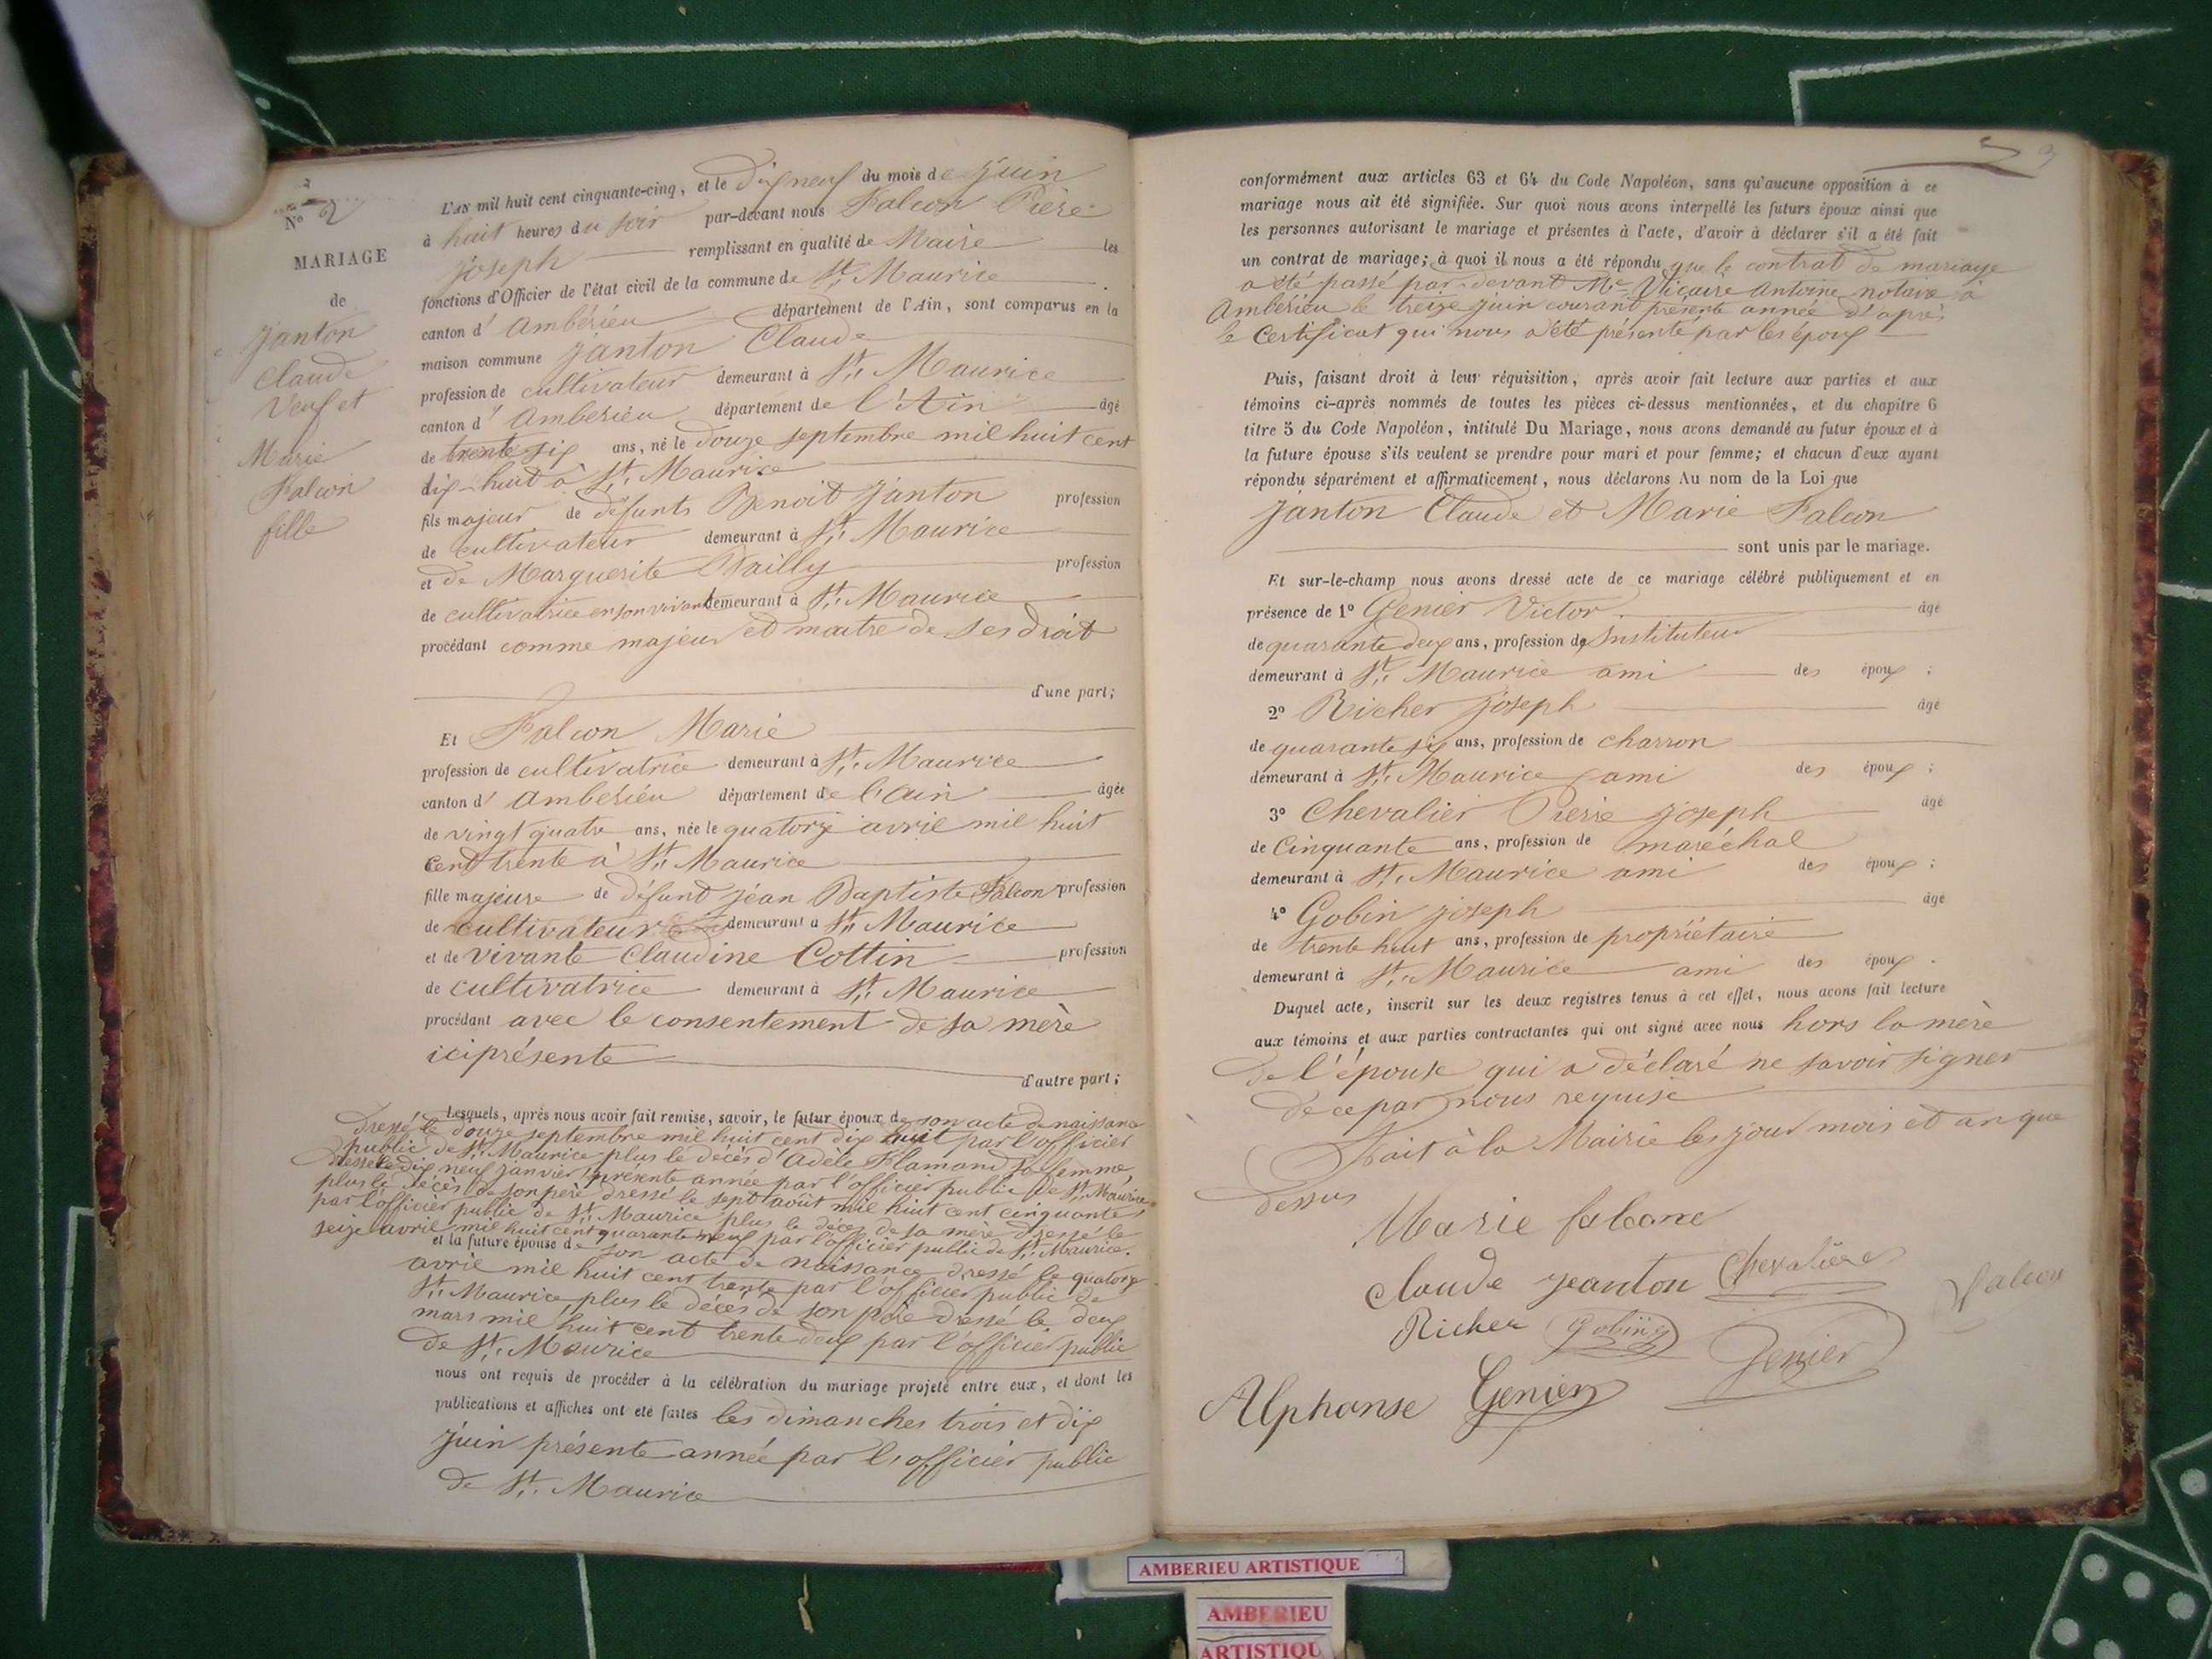 N° 2
MARIAGE
de
Janton
Claude
Veuf et
Marie
Falcon
fille
L'AN mil huit cent cinquante-cinq, et le dix neuf du mois de Juin
à huit heures du soir par-devant nous Falcon Pierre
joseph remplissant en qualité de Maire les
fonctions d'Officier de l'état civil de la commune de St. Maurice
canton d' Ambérieu département de l'Ain, sont comparus en la
maison commune Janton Claude
profession de cultivateur demeurant à St. Maurice
canton d' Ambérieu département de l'Ain âgé
de trente six ans, né le douze septembre mil huit cent
dix-huit à St. Maurice
fils majeur de défunts Benoit Janton profession
de cultivateur demeurant à St. Maurice
et de Marguerite Bailly profession
de cultivatrice en son vivant demeurant à St. Maurice
procédant comme majeur et maitre de ses droit
d'une part;
Et Falcon Marie
profession de cultivatrice demeurant à St. Maurice
canton d' Ambérieu département de l'Ain âgée
de vingt quatre ans, née le quatorze avril mil huit
cent trente à St. Maurice
fille majeure de défunt jean Baptiste Falcon profession
de cultivateur demeurant à St. Maurice
et de vivante Claudine Cottin profession
de cultivatrice demeurant à St. Maurice
procédant avec le consentement de sa mère
ici présente
d'autre part;
Lesquels, après nous avoir fait remise, savoir, le futur époux de son acte de naissance
dressé le douze septembre mil huit cent dix huit par l'officier
public de St. Maurice plus le décès d'Adèle Flamand sa femme
dressé le dix neuf janvier présente année par l'officier public de St. Maurice
plus le décès de son père dressé le sept août mil huit cent cinquante
par l'officier public de St. Maurice plus le décès de sa mère dressé le
seize avril mil huit cent quarante neuf par l'officier public de St. Maurice.
et la future épouse de son acte de naissance dressé le quatorze
avril mil huit cent trente par l'officier public de
St. Maurice plus le décès de son père dressé le deux
mars mil huit cent trente deux par l'officier public
de St. Maurice
nous ont requis de procéder à la célébration du mariage projeté entre eux, et dont les
publications et affiches ont été faites les dimanches trois et dix
juin présente année par l'officier public
de St. Maurice
conformément aux articles 63 et 64 du Code Napoléon, sans qu'aucune opposition à ce
mariage nous ait été signifiée. Sur quoi nous avons interpellé les futurs époux ainsi que
les personnes autorisant le mariage et présentes à l'acte, d'avoir à déclarer s'il a été fait
un contrat de mariage; à quoi il nous a été répondu que le contrat de mariage
a été passé par-devant Me Vicaire Antoine notaire à
Ambérieu le treize juin courant présente année d'après
le Certificat qui nous a été présenté par les époux
Puis, faisant droit à leur réquisition, après avoir fait lecture aux parties et aux
témoins ci-après nommés de toutes les pièces ci-dessus mentionnées, et du chapitre 6
titre 5 du Code Napoléon, intitulé Du Mariage, nous avons demandé au futur époux et à
la future épouse s'ils veulent se prendre pour mari et pour femme; et chacun d'eux ayant
répondu séparément et affirmativement, nous déclarons Au nom de la Loi que
Janton Claude et Marie Falcon
sont unis par le mariage.
Et sur-le-champ nous avons dressé acte de ce mariage célébré publiquement et en
présence de 1° Genier Victor âgé
de quarante deux ans, profession de Instituteur
demeurant à St. Maurice ami des époux ;
2° Richer joseph âgé
de quarante six ans, profession de charron
demeurant à St. Maurice ami des époux ;
3° Chevalier Pierre joseph âgé
de Cinquante ans, profession de maréchal
demeurant à St. Maurice ami des époux ;
4° Gobin joseph âgé
de trente huit ans, profession de propriétaire
demeurant à St. Maurice ami des époux .
Duquel acte, inscrit sur les deux registres tenus à cet effet, nous avons fait lecture
aux témoins et aux parties contractantes qui ont signé avec nous hors la mère
de l'épouse qui a déclaré ne savoir signer
de ce par nous requise
Fait à la Mairie les jour mois et an que
dessus
Marie falcone
Claude jeanton Chevaliere
Falcon
Richer Gobin
Genier
Alphonse Genier
AMBERIEU ARTISTIQUE
AMBERIEU
ARTISTIQU